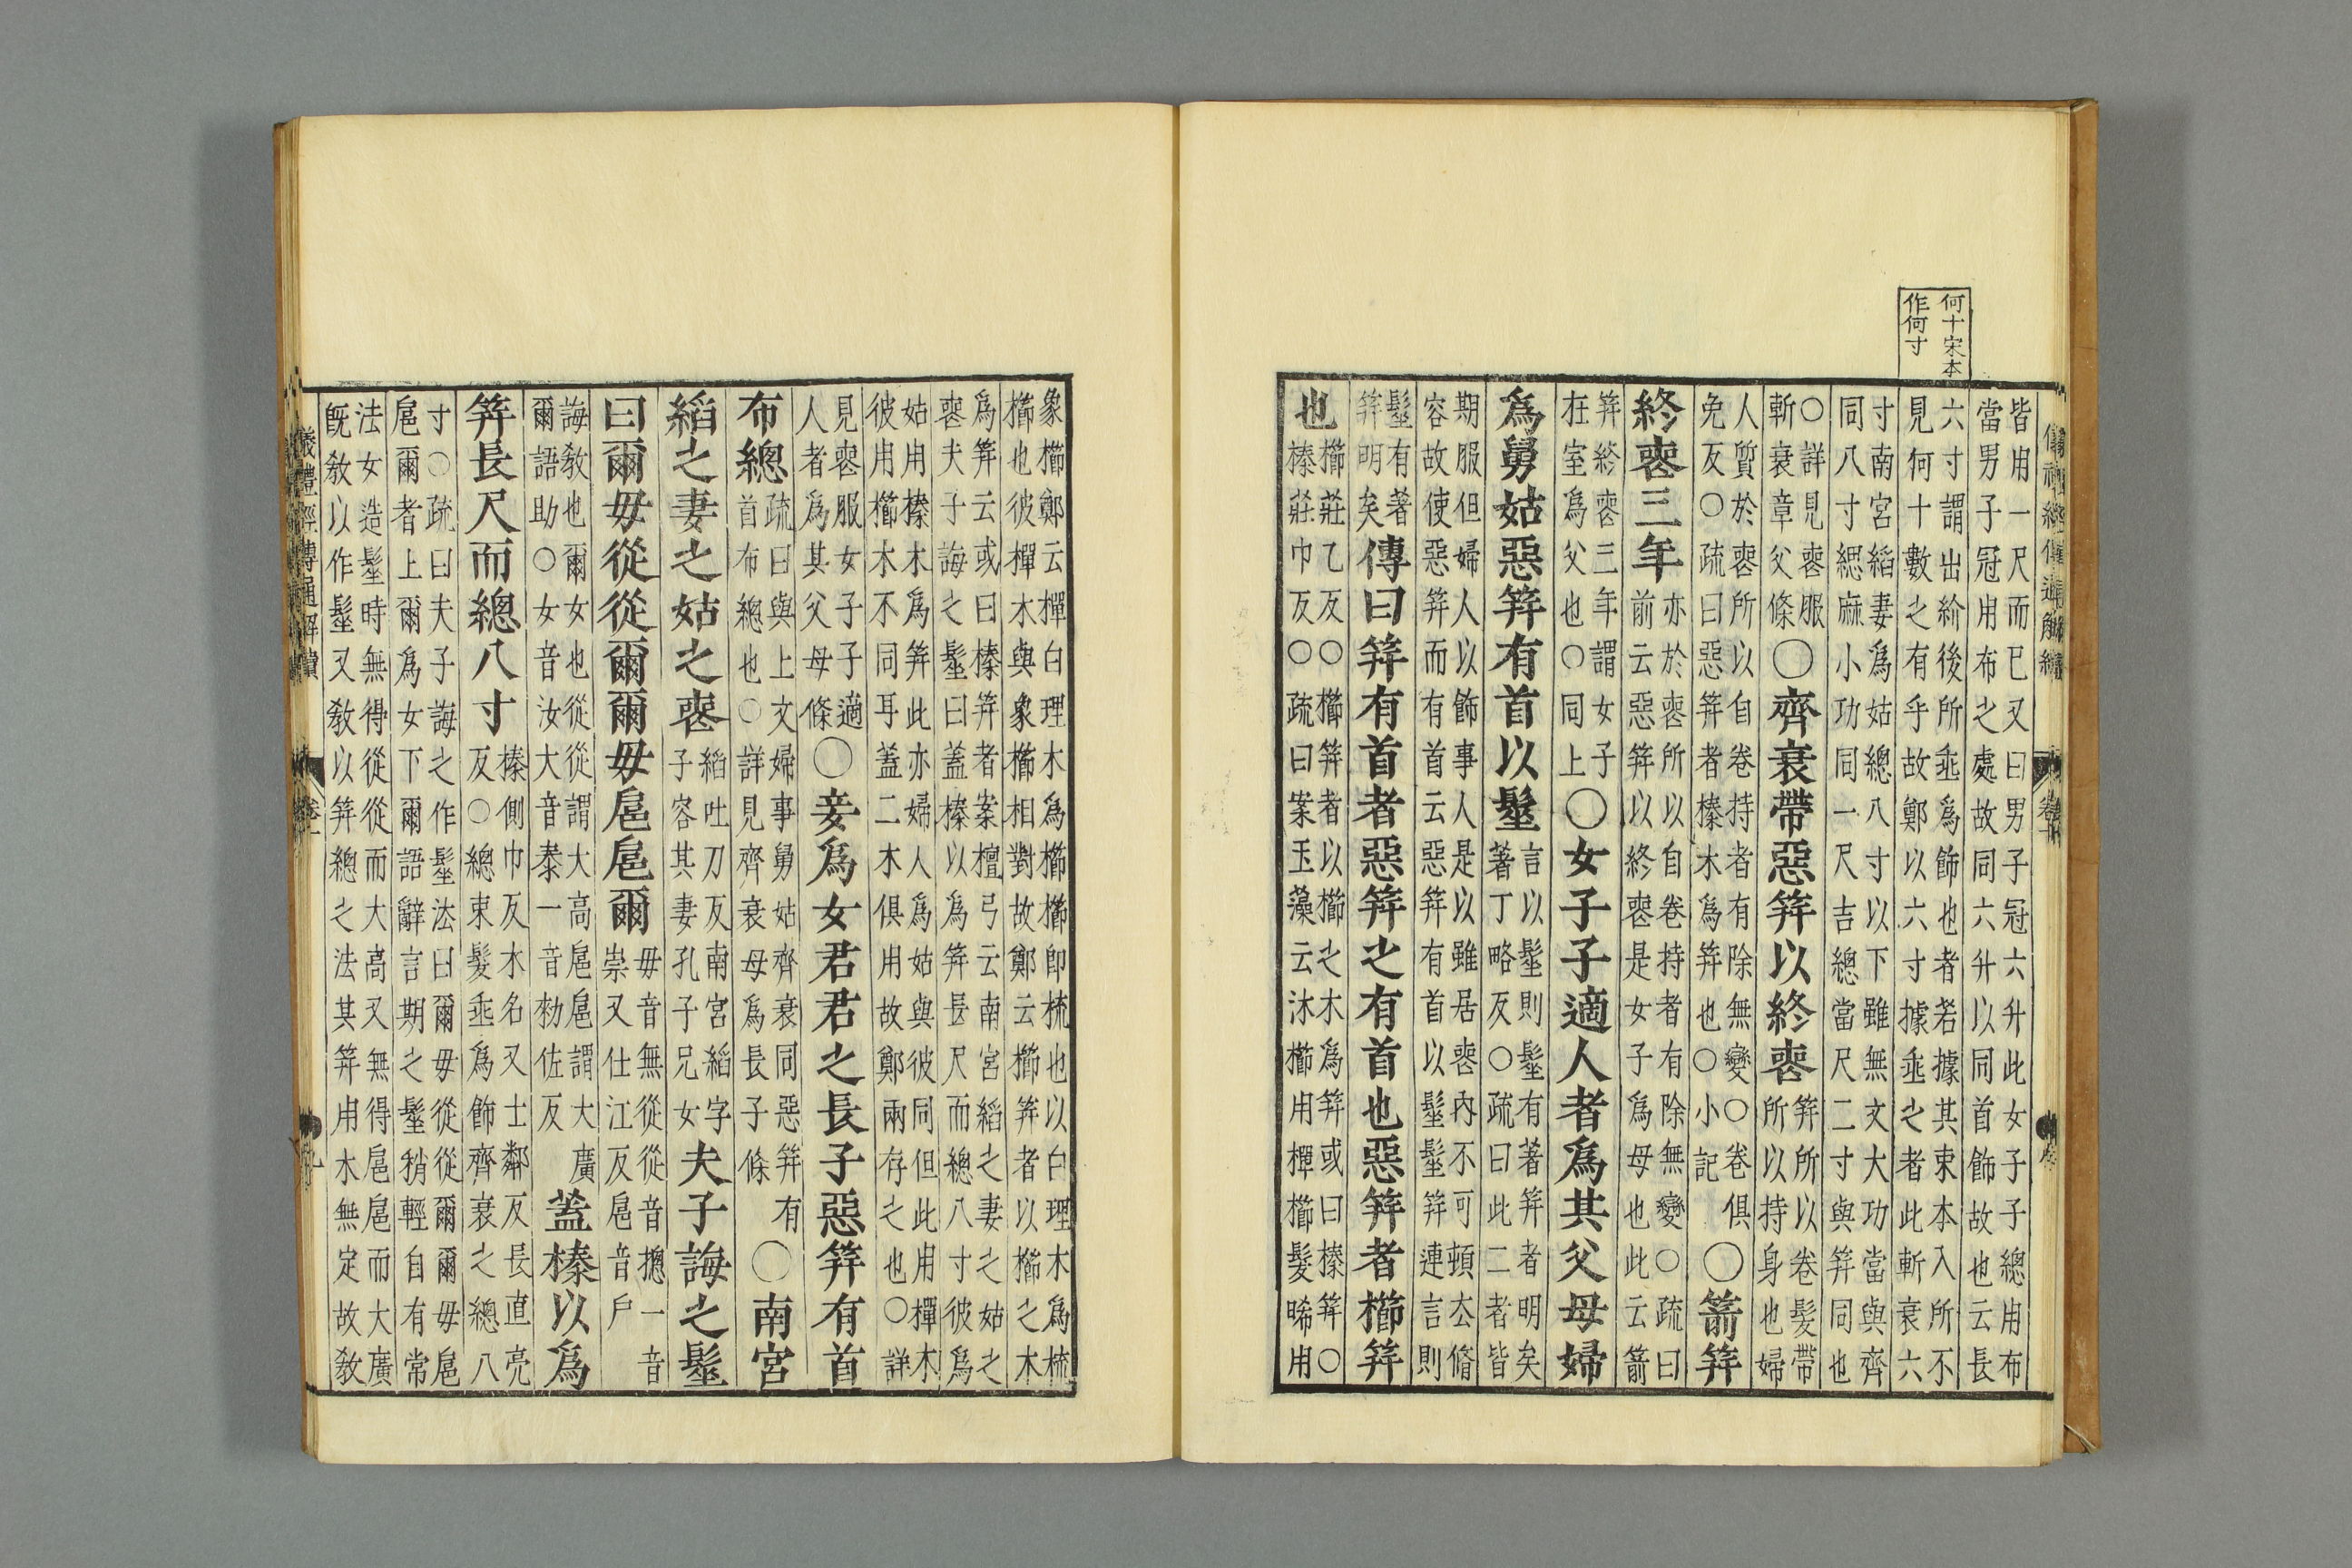 何十宋本
作何寸
皆用一尺而已又曰男子冠六升此女子子總用布
當男子冠用布之處故同六升以同首飾故也云長
六寸謂出紒後所垂爲飾也者若據其束本入所不
見何十數之有乎故鄭以六寸據垂之者此斬衰六
寸南宮縚妻爲姑總八寸以下雖無文大功當與齊
同八寸緦麻小功同一尺吉總當尺二寸與筓同也
○詳見喪服
斬衰章父條
○齊衰帶惡筓以終喪
筓所以卷髮帶
所以持身也婦
人質於喪所以自卷持者有除無變○卷俱
免反○疏曰惡筓者榛木爲筓也○小記
○箭筓
終喪三年
亦於喪所以自卷持者有除無變○疏曰
前云惡筓以終喪是女子爲母也此云箭
筓終喪三年謂女子
在室爲父也○同上
○女子子適人者爲其父母婦
爲舅姑惡筓有首以髽
言以髽則髽有著筓者明矣
著丁略反○疏曰此二者皆
期服但婦人以飾事人是以雖居喪內不可頓去脩
容故使惡筓而有首云惡筓有首以髽髽筓連言則
髽有著
筓明矣
傳曰筓有首者惡筓之有首也惡筓者櫛筓
也
櫛莊乙反○櫛筓者以櫛之木爲筓或曰榛筓○
榛莊巾反○疏曰案玉藻云沐櫛用樿櫛髮晞用
象櫛鄭云樿白理木爲櫛櫛即梳也以白理木爲梳
櫛也彼樿木與象櫛相對故鄭云櫛筓者以櫛之木
爲筓云或曰榛筓者案檀弓云南宮縚之妻之姑之
喪夫子誨之髽曰蓋榛以爲筓長尺而總八寸彼爲
姑用榛木爲筓此亦婦人爲姑與彼同但此用樿木
彼用櫛木不同耳蓋二木俱用故鄭兩存之也○詳
見喪服女子子適
人者爲其父母條
○妾爲女君君之長子惡筓有首
布總
疏曰與上文婦事舅姑齊衰同惡筓有
首布總也○詳見齊衰母爲長子條
○南宮
縚之妻之姑之喪
縚吐刀反南宮縚字
子容其妻孔子兄女
夫子誨之髽
曰爾毋從從爾爾毋扈扈爾
毋音無從從音摠一音
崇又仕江反扈音戶
誨教也爾女也從從謂大高扈扈謂大廣
爾語助○女音汝大音泰一音勑佐反
蓋榛以爲
筓長尺而總八寸
榛側巾反木名又士鄰反長直亮
反○總束髮垂爲飾齊衰之總八
寸○疏曰夫子誨之作髽法曰爾毋從從爾爾毋扈
扈爾者上爾爲女下爾語辭言期之髽稍輕自有常
法女造髽時無得從從而大高又無得扈扈而大廣
旣敎以作髽又敎以筓總之法其筓用木無定故敎